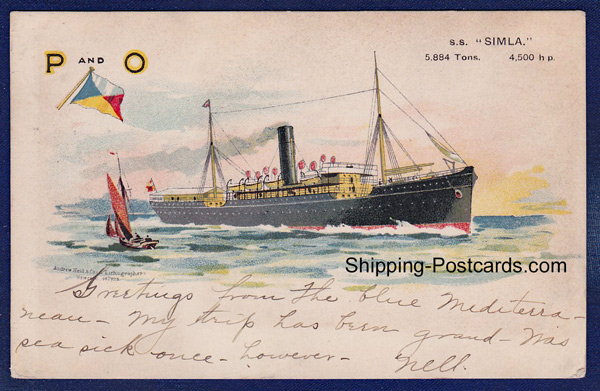 P AND O
s.s. "SIMLA."
5,884 Tons. 4,500 h p.
Shipping-Postcards.com
Greetings from the blue Mediterra-
nean - My trip has been grand - Was
sea sick once - however -
Nell.